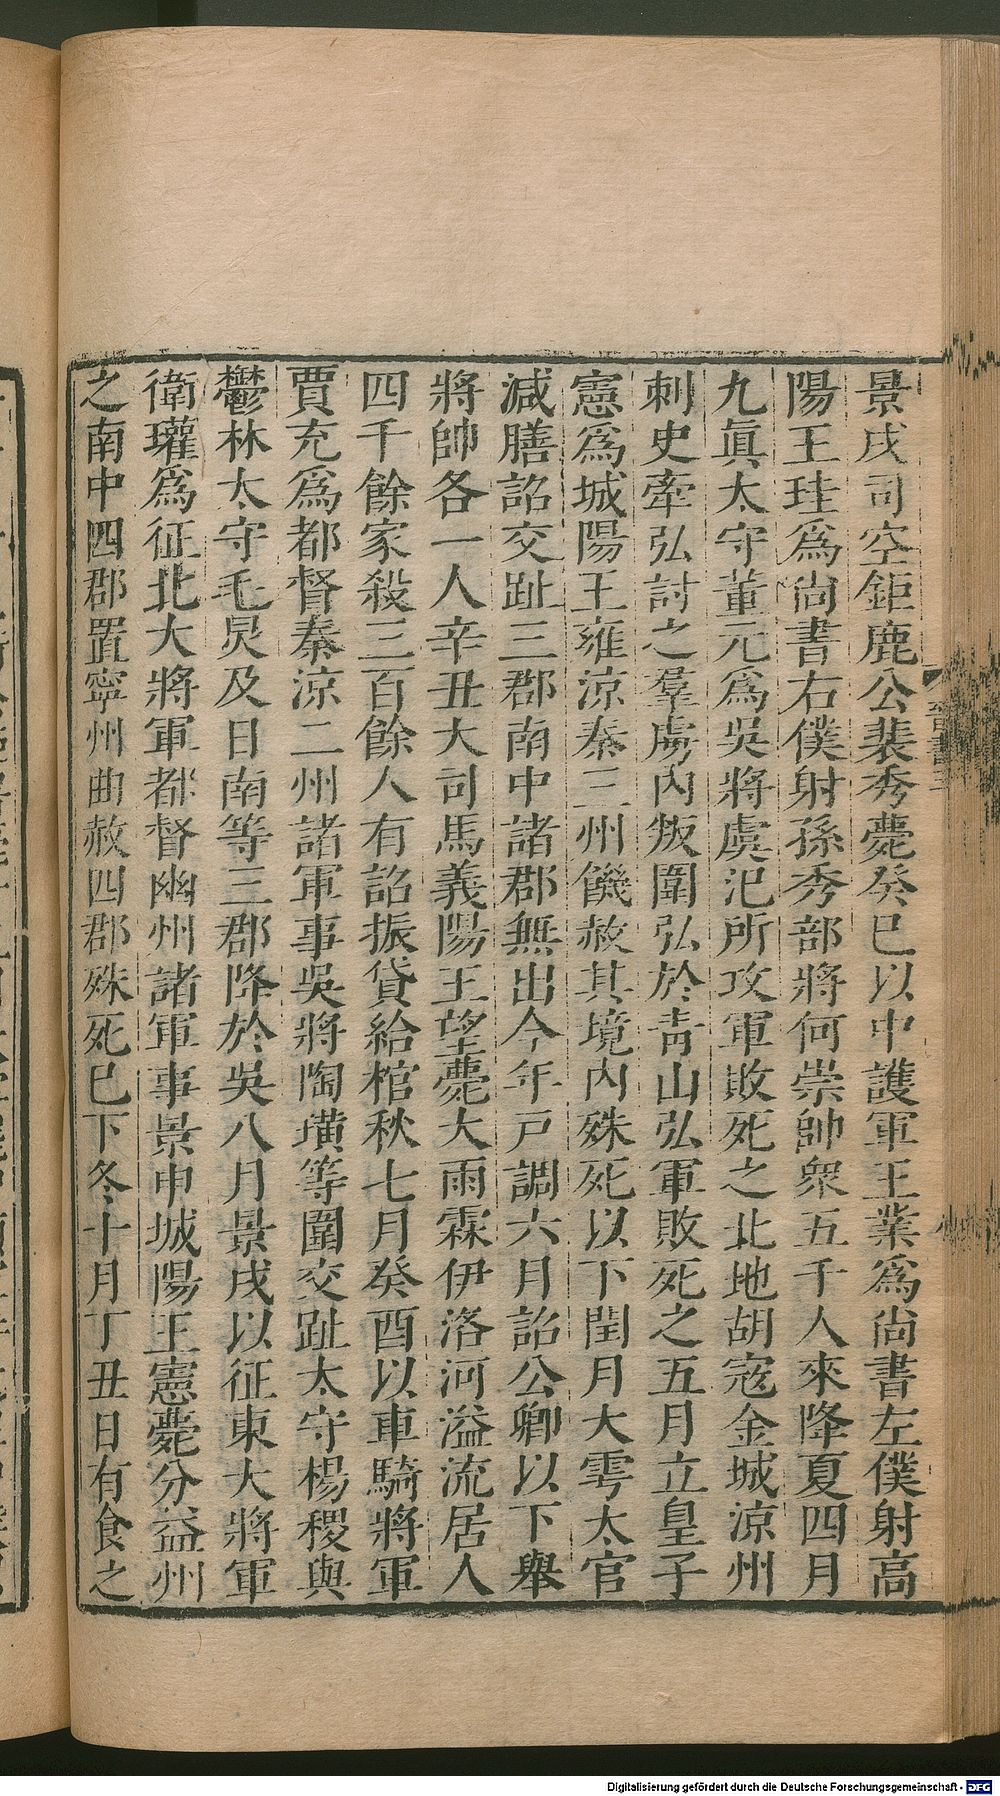 景戌司空鉅鹿公裴秀薨癸巳以中護軍王業爲尚書左僕射高
陽王珪爲尚書右僕射孫秀部將何崇帥衆五千人來降夏四月
九眞太守董元爲吳將虞汜所攻軍敗死之北地胡寇金城涼州
刺史牽弘討之羣虜內叛圍弘於青山弘軍敗死之五月立皇子
憲爲城陽王雍涼秦三州饑赦其境內殊死以下閏月大雩太官
減膳詔交趾三郡南中諸郡無出今年戸調六月詔公卿以下舉
將帥各一人辛丑大司馬義陽王望薨大雨霖伊洛河溢流居人
四千餘家殺三百餘人有詔振貸給棺秋七月癸酉以車騎將軍
賈充爲都督秦涼二州諸軍事吳將陶璜等圍交趾太守楊稷與
鬱林太守毛炅及日南等三郡降於吳八月景戌以征東大將軍
衛瓘爲征北大將軍都督幽州諸軍事景申城陽王憲薨分益州
之南中四郡置寧州曲赦四郡殊死已下冬十月丁丑日有食之
Digitalisierung gefördert durch die Deutsche Forschungsgemeinschaft - DFG